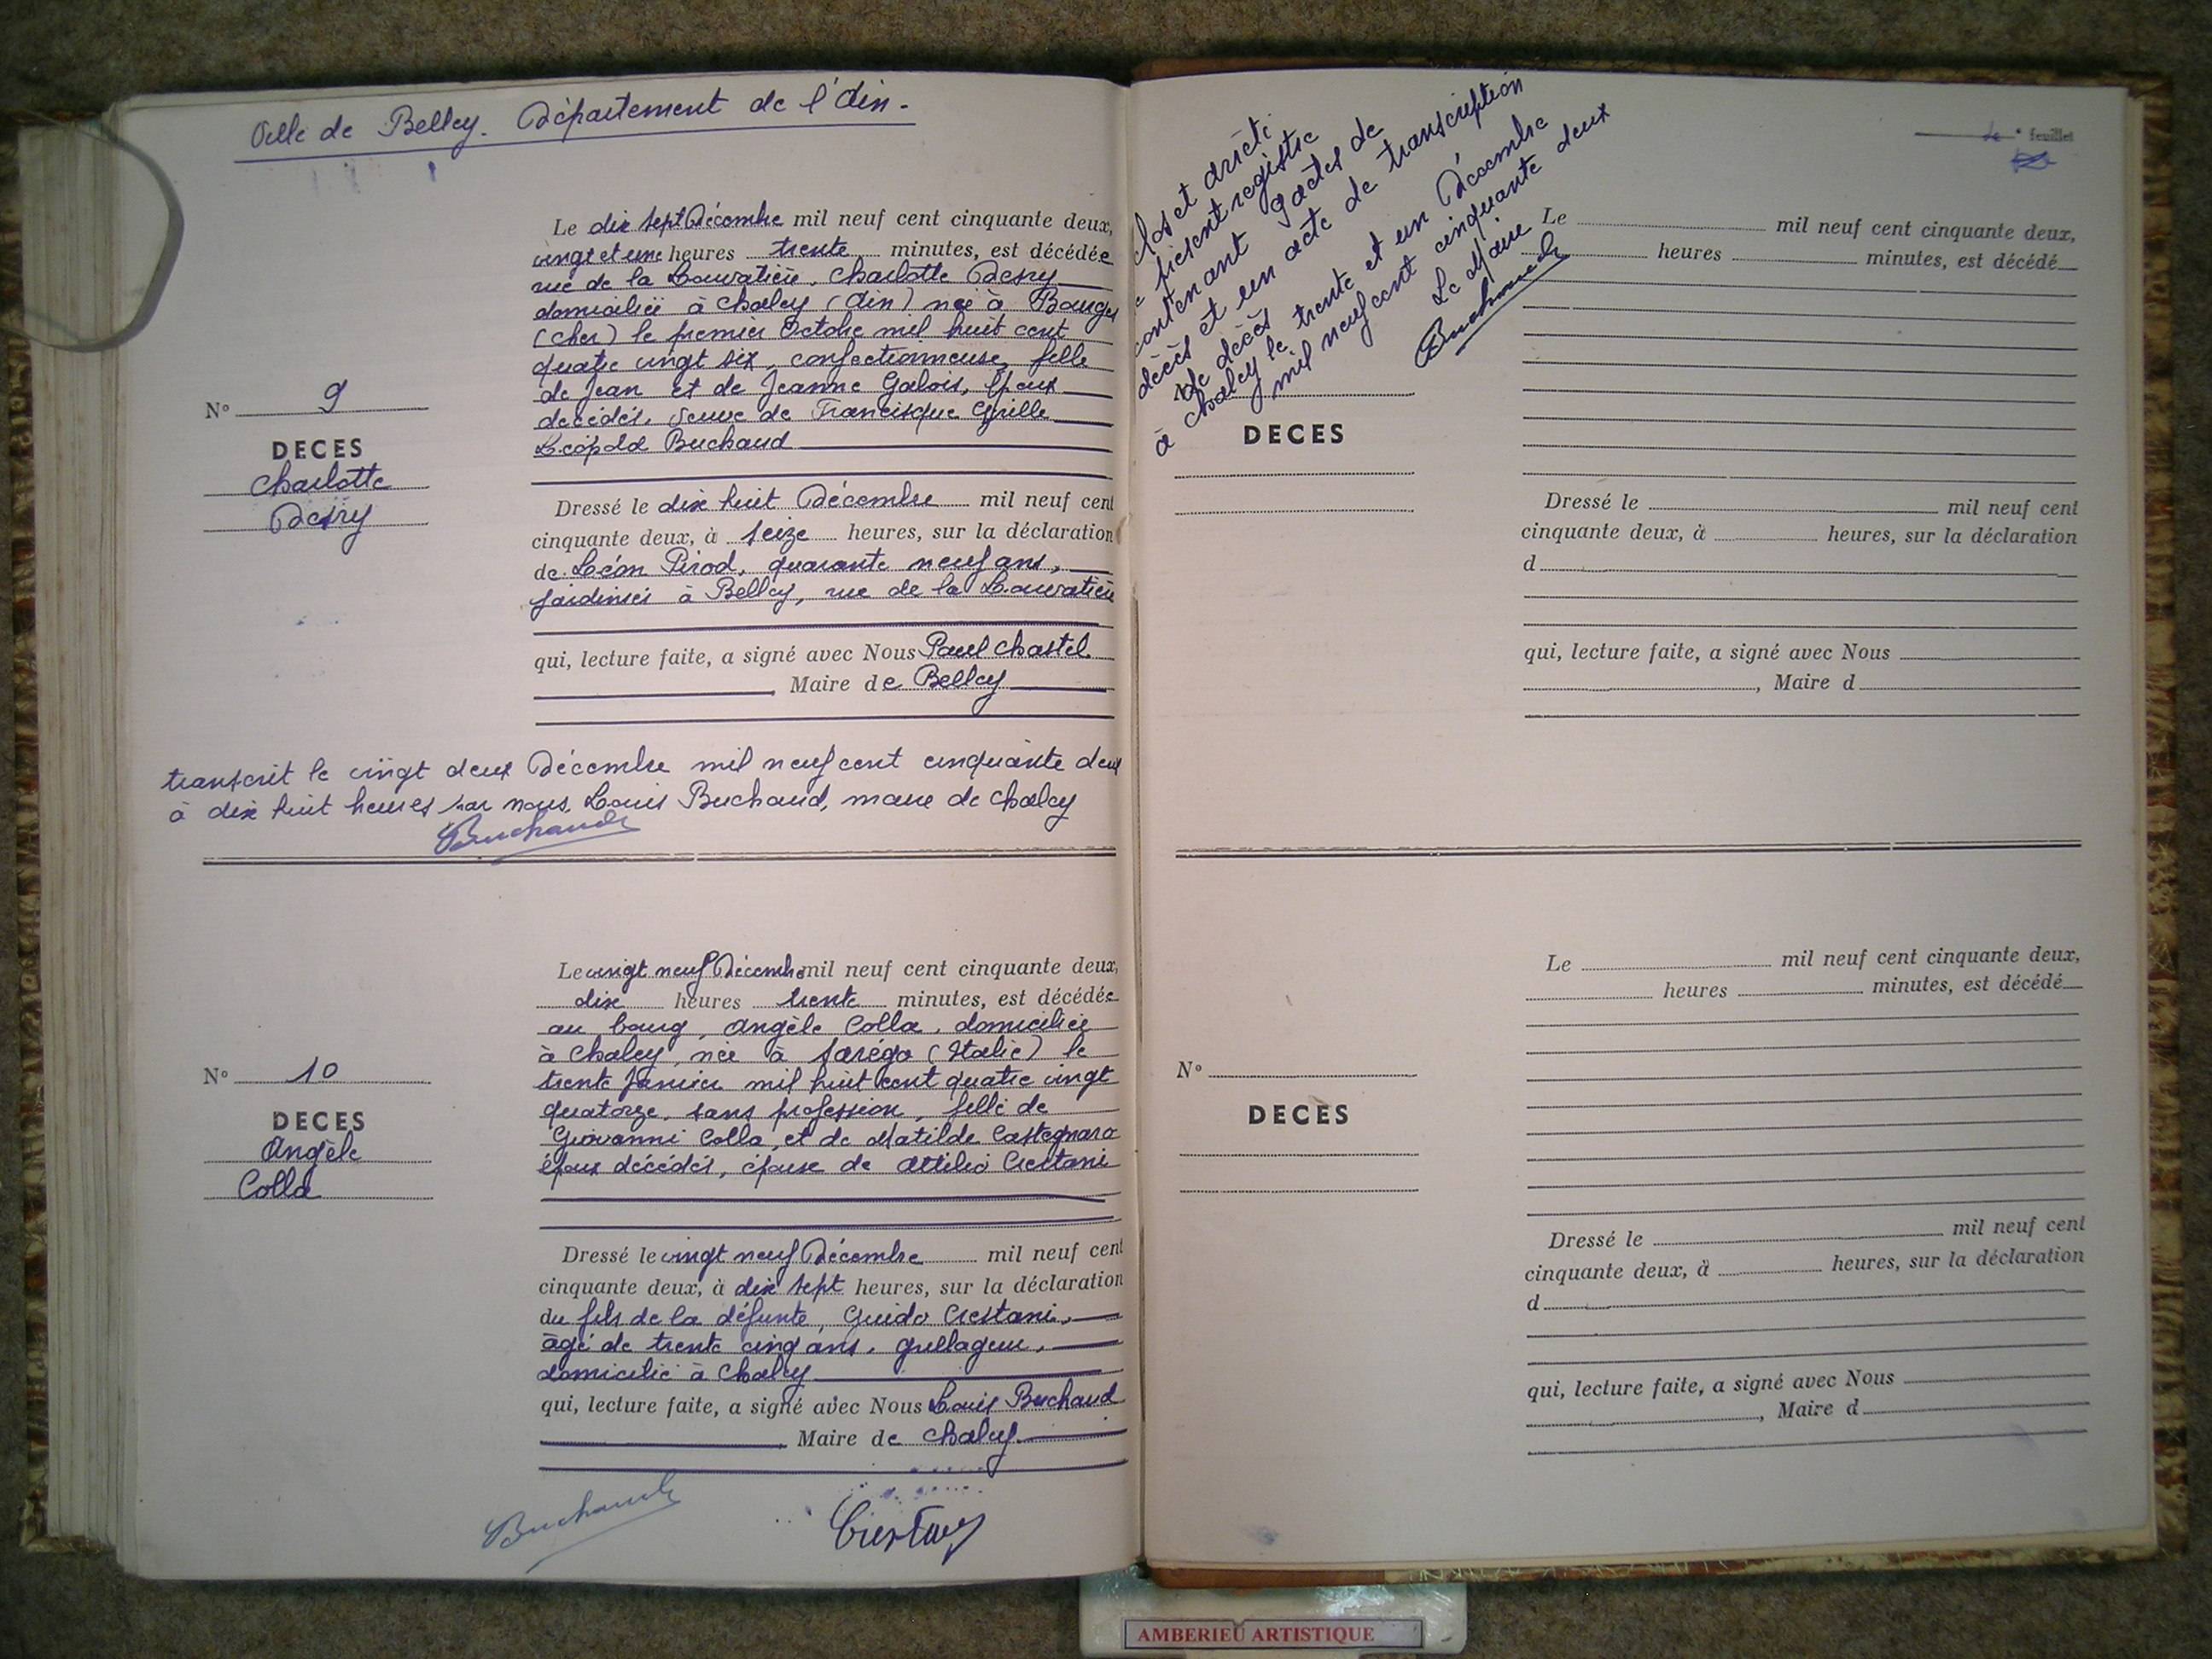 Ville de Belley. Département de l'Ain.
Le dix sept Décembre mil neuf cent cinquante deux,
vingt et une heures trente minutes, est décédée
rue de la Louvatière, Charlotte Desry
domiciliée à Chaley (Ain) née à Bourges
(Cher) le premier Octobre mil huit cent
quatre vingt six, confectionneuse, fille
de Jean et de Jeanne Galois, époux
décédés, veuve de Francisque Cyrille
Léopold Buchaud
N° 9
DECES
Charlotte
Desry
Dressé le dix huit Décembre mil neuf cent
cinquante deux, à seize heures, sur la déclaration
de Léon Pirod, quarante neuf ans,
jardinier à Belley, rue de la Louvatière
qui, lecture faite, a signé avec Nous Paul Chastel
, Maire de Belley
transcrit le vingt deux Décembre mil neuf cent cinquante deux
à dix huit heures par nous, Louis Buchaud, maire de Chaley
Buchaud
Le vingt neuf Décembre mil neuf cent cinquante deux,
dix heures trente minutes, est décédée
au bourg, Angèle Colla, domiciliée
à Chaley, née à Sarégo (Italie) le
trente Janvier mil huit cent quatre vingt
quatorze, sans profession, fille de
Giovanni Colla, et de Matilde Castegnaro
époux décédés, épouse de Attilio Crestani
N° 10
DECES
Angèle
Colla
Dressé le vingt neuf Décembre mil neuf cent
cinquante deux, à dix sept heures, sur la déclaration
du fils de la défunte, Guido Crestani,
âgé de trente cinq ans, grillageur,
domicilié à Chaley
qui, lecture faite, a signé avec Nous Louis Buchaud
, Maire de Chaley
Buchaud
Crestani
Clos et arrêté
le présent registre
contenant 9 actes de
décès et un acte de transcription
de décès
à Chaley le trente et un Décembre
mil neuf cent cinquante deux
Le Maire
Buchaud
feuillet
DECES
Le mil neuf cent cinquante deux,
heures minutes, est décédé
Dressé le mil neuf cent
cinquante deux, à heures, sur la déclaration
d
qui, lecture faite, a signé avec Nous
, Maire d
Le mil neuf cent cinquante deux,
heures minutes, est décédé
N°
DECES
Dressé le mil neuf cent
cinquante deux, à heures, sur la déclaration
d
qui, lecture faite, a signé avec Nous
, Maire d
AMBERIEU ARTISTIQUE